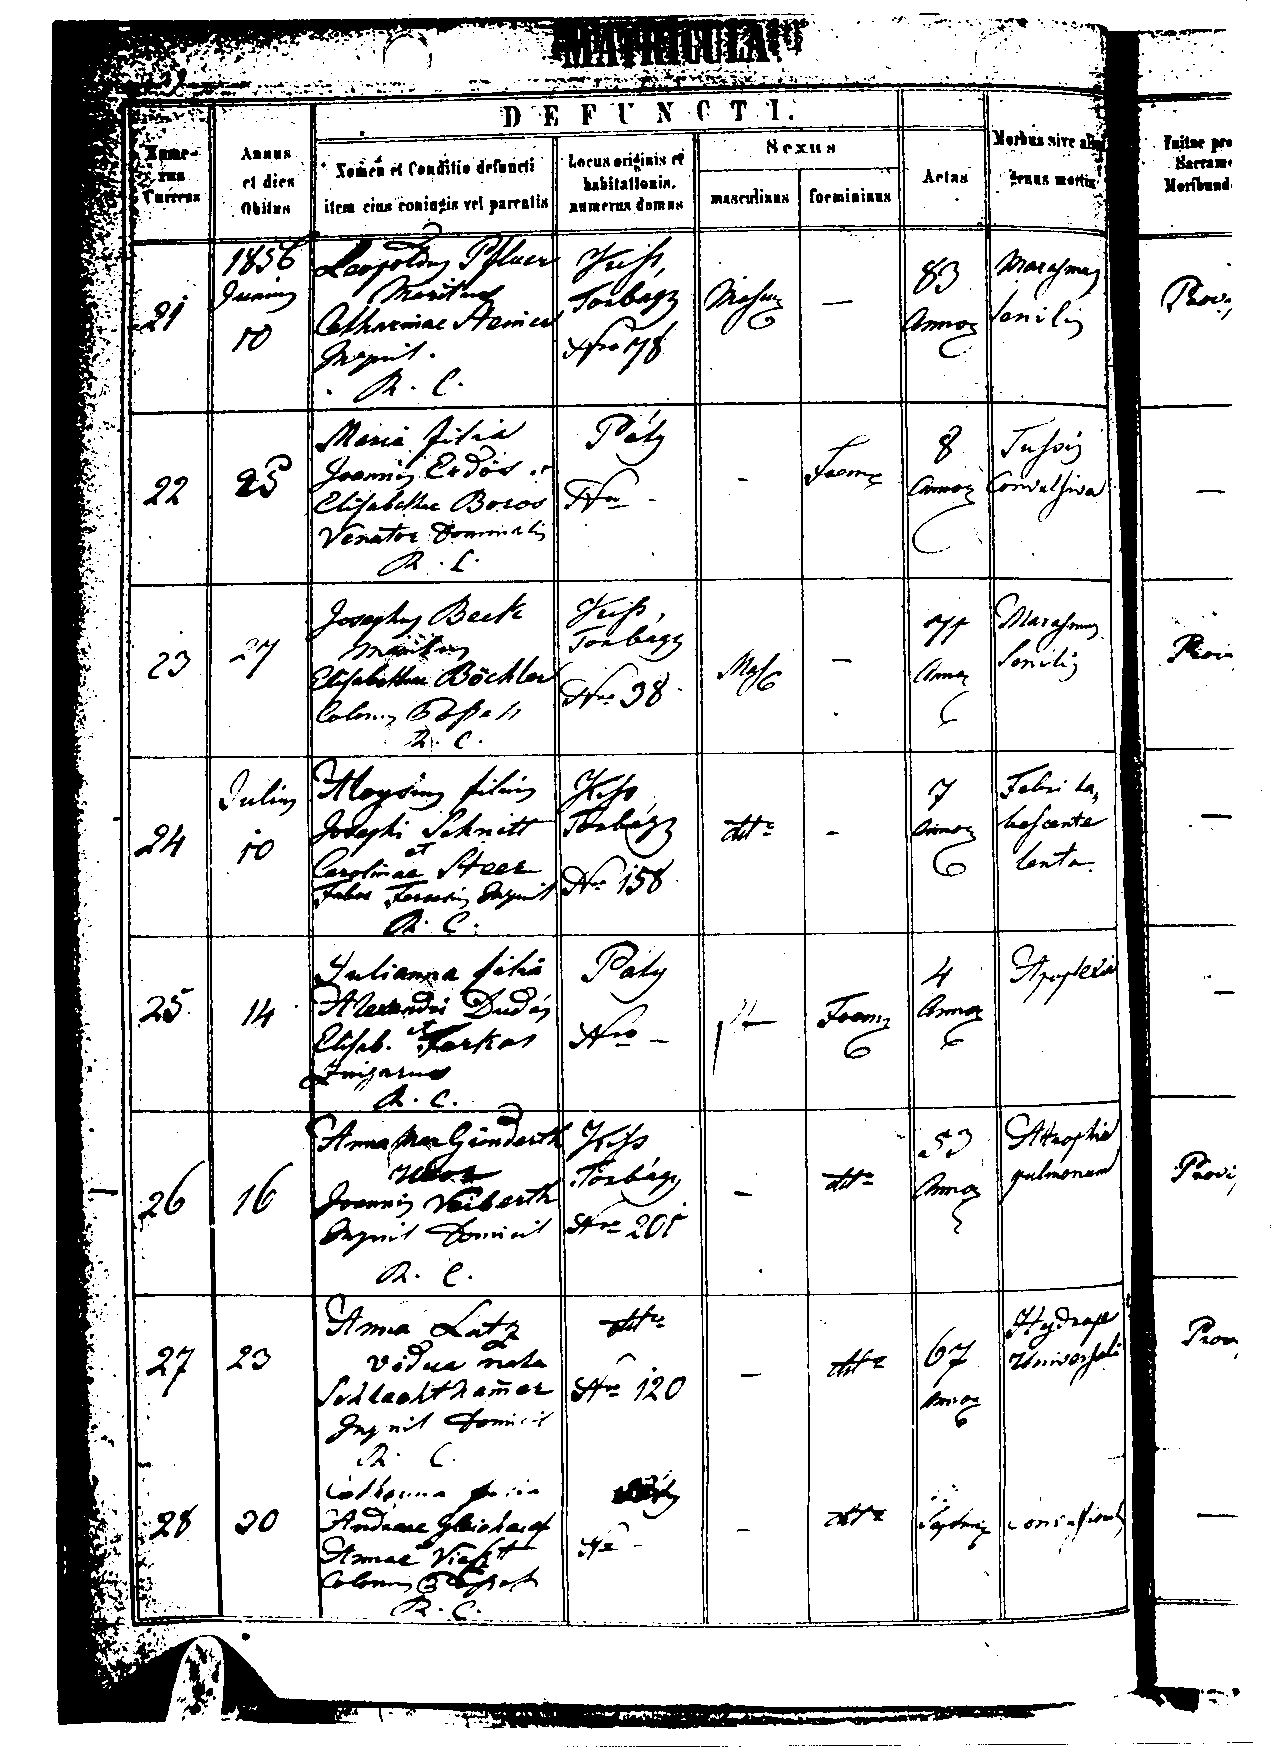 MATRICULA
DEFUNCTI.
Nume-
rus
Currens
Annus
et dies
Obitus
Nomen et Conditio defuncti
item eius coniugis vel parentis
Locus originis et
habitationis,
numerus domus
Sexus
masculinus
foemininus
Aetas
Morbus sive aliud
genus mortis
21
1856
Junius
10
Leopoldus Pfluer
Maritus
Catharinae
Inquil.
R. C.
Kiss,
Torbágy
Nro 178
Mascu
—
83
Annor
Marasmus
Senilis
Provi
22
25
Maria filia
Joannis Erdős et
Elisabethae Boros
Venator Dominalis
R. C.
Páty
Nro -
-
Foem
8
Annor
Tussis
Convulsiva
—
23
27
Josephus Beck
maritus
Elisabethae Böchler
Colonus
R. C.
Kiss,
Torbágy
Nro 38
Mas
—
Annor
Marasmus
Senilis
Provi
24
Julius
10
Aloysius filius
Josephi Schnitt
et
Carolinae Steer
Faber Inquil
R. C.
Kiss
Torbágy
Nro 158
dtto
-
7
Annor
Febri ta
bescente
lenta
—
25
14
Julianna filia
Alexandri Dudás
et
Elisab. Farkas
R. C.
Páty
Nro -
Foem
4
Annor
Apoplexia
-
26
16
Anna Mar Günderth
uxor
Joannis Veiberth
Inquil Domicil
R. C.
Kiss
Torbágy
Nro 201
-
dtto
53
Annor
Atrophia
pulmonum
Provi
27
23
Anna Lutz
vidua nata
Schlachthamer
Inquil Domicil
R. C.
dtto
Nro 120
—
dtto
67
Annor
Hydrops
Universalis
Prov
28
30
Catharina filia
Andreae
Annae
Colonus
R. C.
Nro -
-
dtto
—